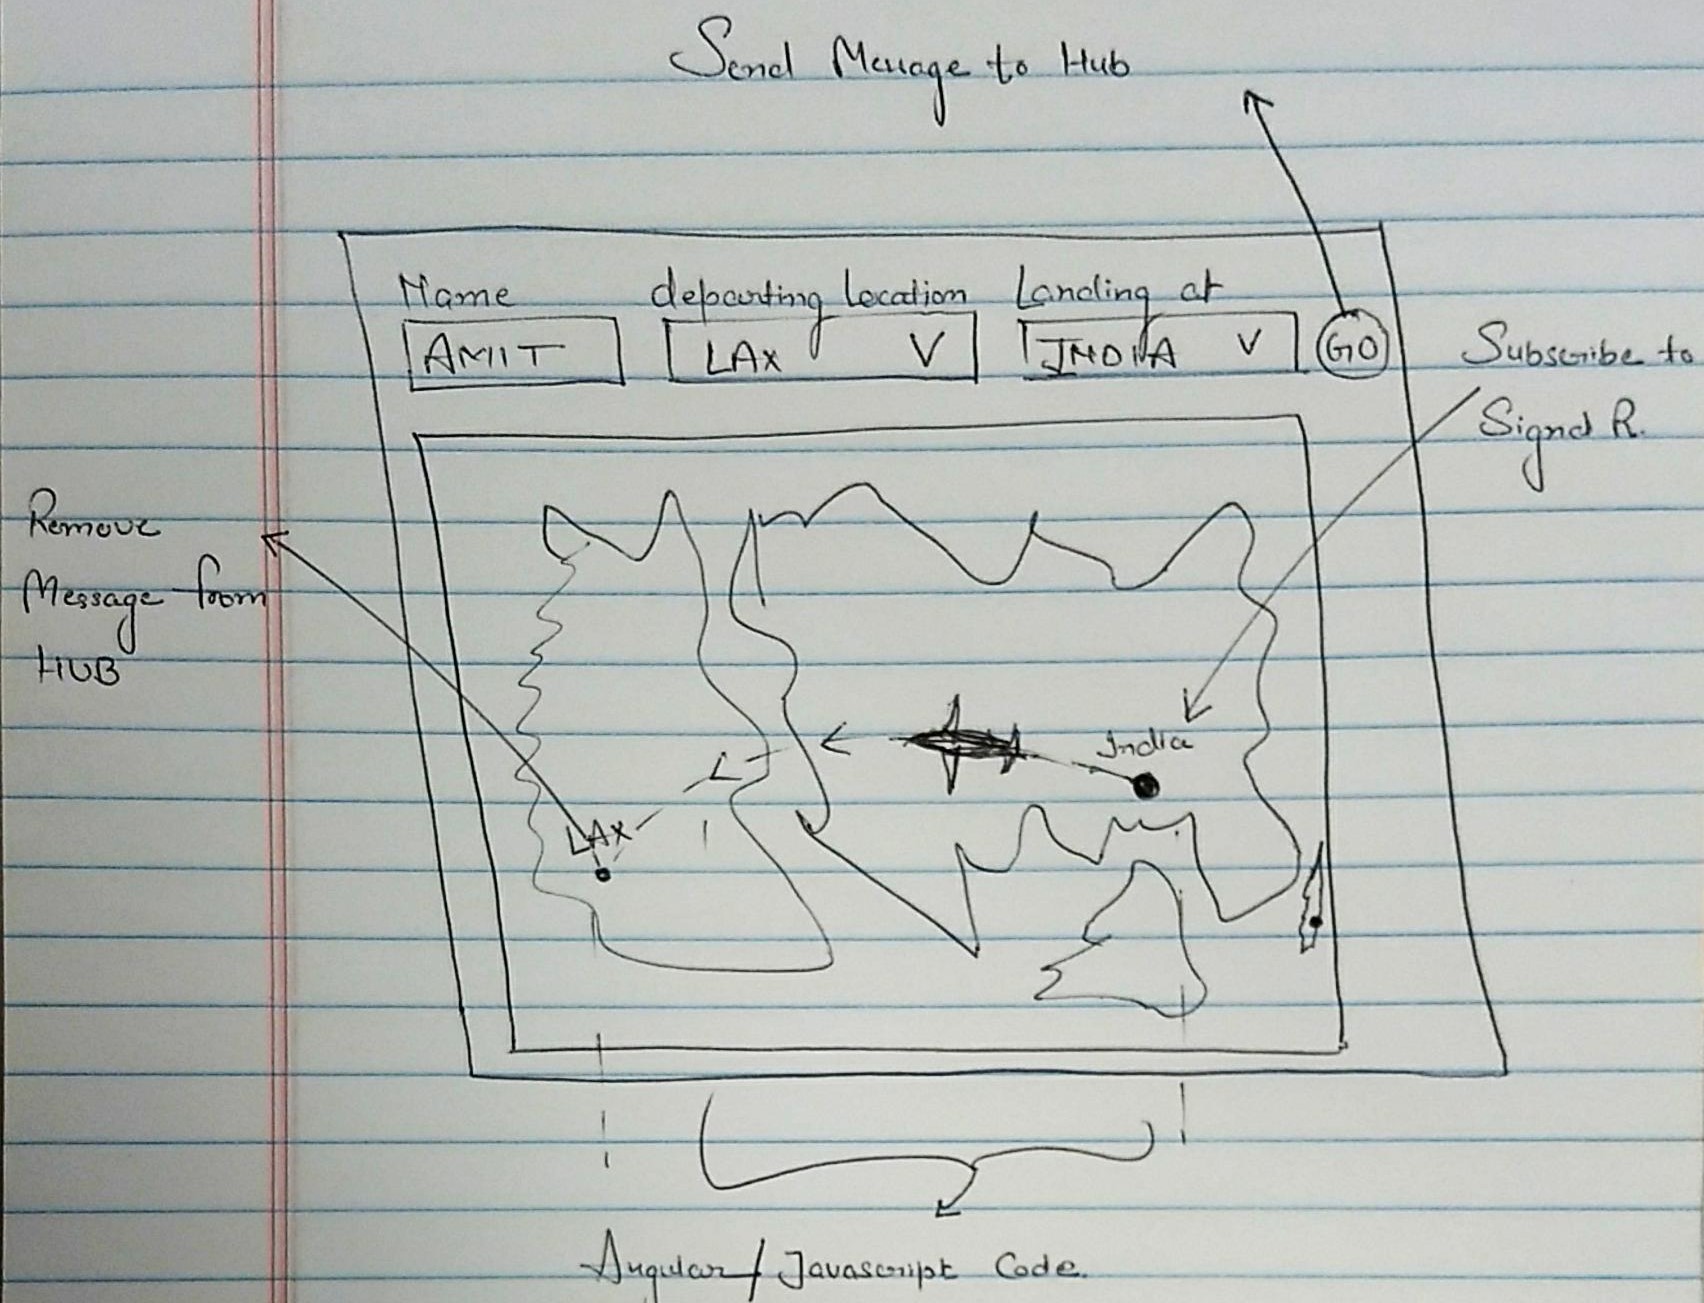 Send Message to Hub
Name departing Location Landing at
AMIT LAX V INDIA V GO
Subscribe to
Signal R.
Remove
Message from
HUB
India
LAX
Angular/Javascript Code.